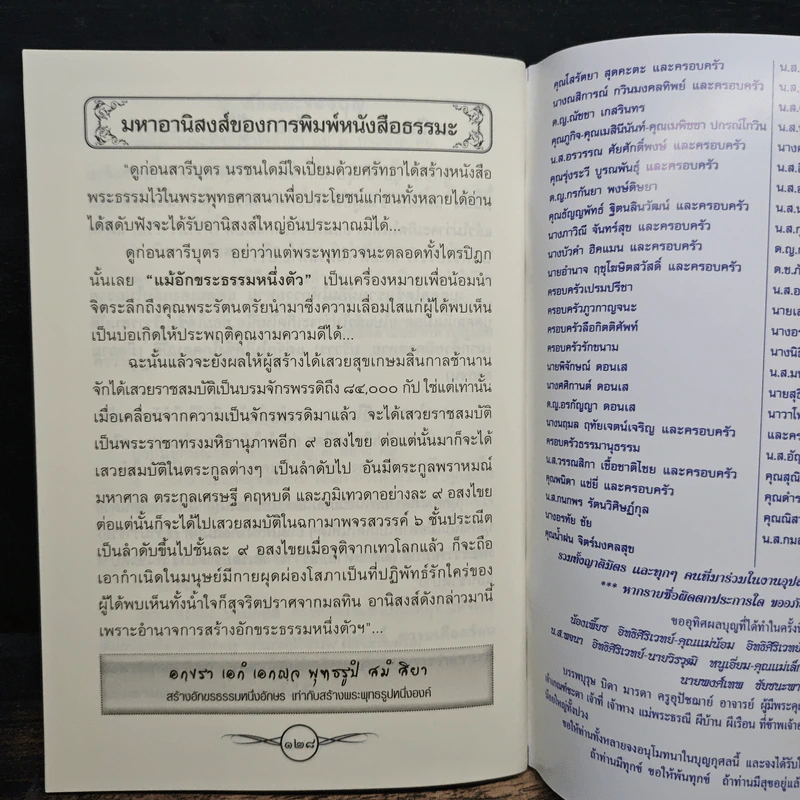 มหาอานิสงส์ของการพิมพ์หนังสือธรรมะ
"ดูก่อนสารีบุตร นรชนใดมีใจเปี่ยมด้วยศรัทธาได้สร้างหนังสือ
พระธรรมไว้ในพระพุทธศาสนาเพื่อประโยชน์แก่ชนทั้งหลายได้อ่าน
ได้สดับฟังจะได้รับอานิสงส์ใหญ่อันประมาณมิได้...
ดูก่อนสารีบุตร อย่าว่าแต่พระพุทธวจนะตลอดทั้งไตรปิฎก
นั้นเลย "แม้อักขระธรรมหนึ่งตัว" เป็นเครื่องหมายเพื่อน้อมนำ
จิตระลึกถึงคุณพระรัตนตรัยนำมาซึ่งความเลื่อมใสแก่ผู้ได้พบเห็น
เป็นบ่อเกิดให้ประพฤติคุณงามความดีได้...
ฉะนั้นแล้วจะยังผลให้ผู้สร้างได้เสวยสุขเกษมสิ้นกาลช้านาน
จักได้เสวยราชสมบัติเป็นบรมจักรพรรดิถึง ๘๔,๐๐๐ กัป ใช่แต่เท่านั้น
เมื่อเคลื่อนจากความเป็นจักรพรรดิมาแล้ว จะได้เสวยราชสมบัติ
เป็นพระราชาทรงมหิธานุภาพอีก ๙ อสงไขย ต่อแต่นั้นมาก็จะได้
เสวยสมบัติในตระกูลต่างๆ เป็นลำดับไป อันมีตระกูลพราหมณ์
มหาศาล ตระกูลเศรษฐี คฤหบดี และภูมิเทวดาอย่างละ ๙ อสงไขย
ต่อแต่นั้นก็จะได้ไปเสวยสมบัติในฉกามาพจรสวรรค์ ๖ ชั้นประณีต
เป็นลำดับขึ้นไปชั้นละ ๙ อสงไขยเมื่อจุติจากเทวโลกแล้ว ก็จะถือ
เอากำเนิดในมนุษย์มีกายผุดผ่องโสภาเป็นที่ปฏิพัทธ์รักใคร่ของ
ผู้ได้พบเห็นทั้งน้ำใจก็สุจริตปราศจากมลทิน อานิสงส์ดังกล่าวมานี้
เพราะอำนาจการสร้างอักขระธรรมหนึ่งตัวฯ"...
อกฺขรา เอกํ เอกญฺจ พุทฺธรูปํ สมํ สิยา
สร้างอักขรธรรมหนึ่งอักษร เท่ากับสร้างพระพุทธรูปหนึ่งองค์
๑๒๘
คุณโสรัตยา สุดคะตะ และครอบครัว
นางณสิการณ์ กวินมงคลทิพย์ และครอบครัว
ด.ญ.ณัชชา เกสรินทร
คุณภูกิจ-คุณเมสินีนันท์-คุณเมพิชชา ปกรณ์โกวิน
น.ส.อรวรรณ ศัยศักดิ์พงษ์ และครอบครัว
คุณรุ่งระวี บูรณพันธุ์ และครอบครัว
ด.ญ.กรกันยา พงษ์ดิษยา
คุณธัญญพัทธ์ ฐิตนลินวัฒน์ และครอบครัว
นางภาวิณี จันทร์สุข และครอบครัว
นางบัวคำ ฮิคแมน และครอบครัว
นายอำนาจ ฤชุโฆษิตสวัสดิ์ และครอบครัว
ครอบครัวเปรมปรีชา
ครอบครัวภูวกาญจนะ
ครอบครัวลือกิตติศัพท์
ครอบครัวรักขนาม
นายพิจักษณ์ ดอนเส
นางศศิกานต์ ดอนเส
ด.ญ.อรกัญญา ดอนเส
นางนฤมล ฤทัยเจตน์เจริญ และครอบครัว
ครอบครัวธรรมานุธรรม
น.ส.วรรณสิกา เชื้อชาติไชย และครอบครัว
คุณพนิดา แซ่ยี่ และครอบครัว
น.ส.กนกพร รัตนวิศิษฎ์กุล
นางอรทัย ชัย
คุณน้ำฝน จิตร์มงคลสุข
รวมทั้งญาติมิตร และทุกๆ คนที่มาร่วมในงาน
*** หากรายชื่อผิดตกประการใด ขออภัย
ขออุทิศผลบุญที่ได้ทำในครั้ง
น้องเพี้ยซ อิทธิศิริเวทย์-คุณแม่น้อม อิทธิศิริเวทย์
น.ส.พจนา อิทธิศิริเวทย์-นายวิรวุฒิ หนูเอี่ยม-คุณแม่
นายพงศ์เทพ ชัยชนะ
บรรพบุรุษ บิดา มารดา ครูอุปัชฌาย์ อาจารย์ ผู้มีพระคุณ
เจ้ากรรมชะตา เจ้าที่ เจ้าทาง แม่พระธรณี ผีบ้าน ผีเรือน ที่ข้าพเจ้า
น้อยใหญ่ทั้งปวง
ขอให้ท่านทั้งหลายจงอนุโมทนาในบุญกุศลนี้ และจงได้รับ
ถ้าท่านมีทุกข์ ขอให้พ้นทุกข์ ถ้าท่านมีสุขอยู่แล้ว